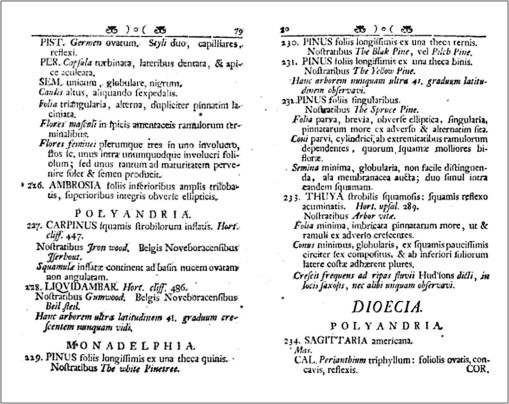 )o( 79
PIST. Germen ovatum. Styli duo, capillares,
reflexi.
PER. Capsula turbinata, lateribus dentata, & api-
ce aculeata,
SEM. unicum, globulare, nigrum.
Caulis altus, aliquando sexpedalis.
Folia triangularia, alterna, dupliciter pinnatim la-
ciniata.
Flores masculi in spicis amentaceis ramulorum ter-
minalibus.
Flores feminei plerumque tres in uno involucro,
flos sc. unus intra unumquodque involucri foli-
olum; sed unus tantum ad maturitatem perve-
nire solet & semen producit.
226. AMBROSIA foliis inferioribus amplis triloba-
tis, superioribus integris obverse ellipticis.
POLYANDRIA.
227. CARPINUS squamis strobilorum inflatis. Hort.
cliff. 447.
Nostratibus Iron wood, Belgis Noveboracensibus
Yserhout.
Squamulæ inflatæ continent ad basin nucem ovatam
non angulatam.
228. LIQVIDAMBAR. Hort. cliff. 486.
Nostratibus Gumwood, Belgis Noveboracensibus
Beil steil.
Hanc arborem ultra latitudinem 41. graduum cre-
scentem nunquam vidi.
MONADELPHIA.
229. PINUS foliis longissimis ex una theca quinis.
Nostratibus The white Pinetree.
80 )o(
230. PINUS foliis longissimis ex una theca ternis.
Nostratibus The Blak Pine, vel Pitch Pine.
231. PINUS foliis longissimis ex una theca binis.
Nostratibus The Yellow Pine.
Hanc arborem nunquam ultra 41. graduum latitu-
dinem observavi.
232. PINUS foliis singularibus.
Nostratibus The Spruce Pine.
Folia parva, brevia, obverse elliptica, singularia,
pinnatarum more ex adverso & alternatim sita.
Coni parvi, cylindrici, ab extremitatibus ramulorum
dependentes, quorum squamæ molliores bi-
floræ.
Semina minima, globularia, non facile distinguen-
da, ala membranacea aucta; duo simul intra
eandem squamam.
233. THUYA strobilis squamosis: squamis reflexo
acuminatis. Hort. upsal. 289.
Nostratibus Arbor vitæ.
Folia minima, imbricata pinnatarum more, ut &
ramuli ex adverso crescentes.
Conus minimus, globularis, ex squamis paucissimis
circiter sex compositus, & ab inferiori foliorum
latere costæ adhærent plures.
Crescit frequens ad ripas fluvii Hudsons dicti, in
locis saxosis, nec alibi unquam observavi.
DIOECIA.
POLYANDRIA.
234. SAGITTARIA americana.
Mas.
CAL. Perianthium triphyllum: foliolis ovatis, con-
cavis, reflexis. COR.